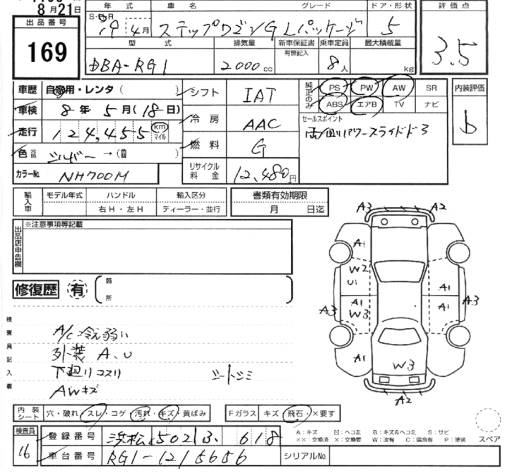 8月21日
年式 車名 グレード ドア・形状 評価点
出品番号
19年 4月 ステップワゴン GLパッケージ 5
169
3.5
型式 排気量 新車保証書 乗車定員 最大積載量
有無記入
DBA-RG1 2000cc 8人 kg
車歴 自家用・レンタ シフト IAT
PS PW AW SR 内装評価
ABS エアB TV ナビ
車検 8年 5月(18日)
冷房 AAC
セールスポイント
b
走行 124,455 km マイル
両側パワースライドドア
色 シルバー→
燃料 G
カラーNo. NH700M
リサイクル料金 12,480円
輸入車 モデル年式 ハンドル 輸入区分 書類有効期限
右H・左H ディーラー・並行 月 日迄
※注意事項等記載
修復歴 有 箇所
A2 A3
A1 A1
W2
U1
A3 W3 A3
A1 A1
W3
A2
検査員記入
A/C冷え弱い
外装 A.U
下廻りコスリ シートシミ
AWキズ
内装シート 穴・破れ スレ・コゲ 汚れ・キズ・黄ばみ Fガラス キズ 飛石 ×要す
スペア
検査員
16
登録番号 浜松502 ね 618
A:キズ U:ヘコミ B:キズ&ヘコミ S:サビ
XX:交換済 X:要交換 W:波板 C:腐食 P:塗装
車台番号 RG1-1215656 シリアルNo